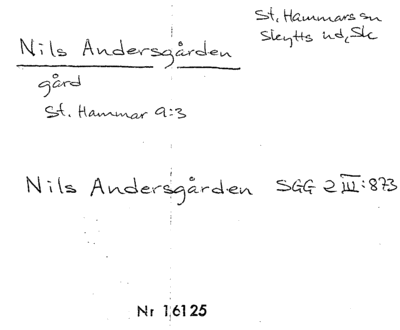 St. Hammars sn
Skytts hd, Sk
Nils Andersgården
gård
St. Hammar 9:3
Nils Andersgården SGG 2 III:873
Nr 16125